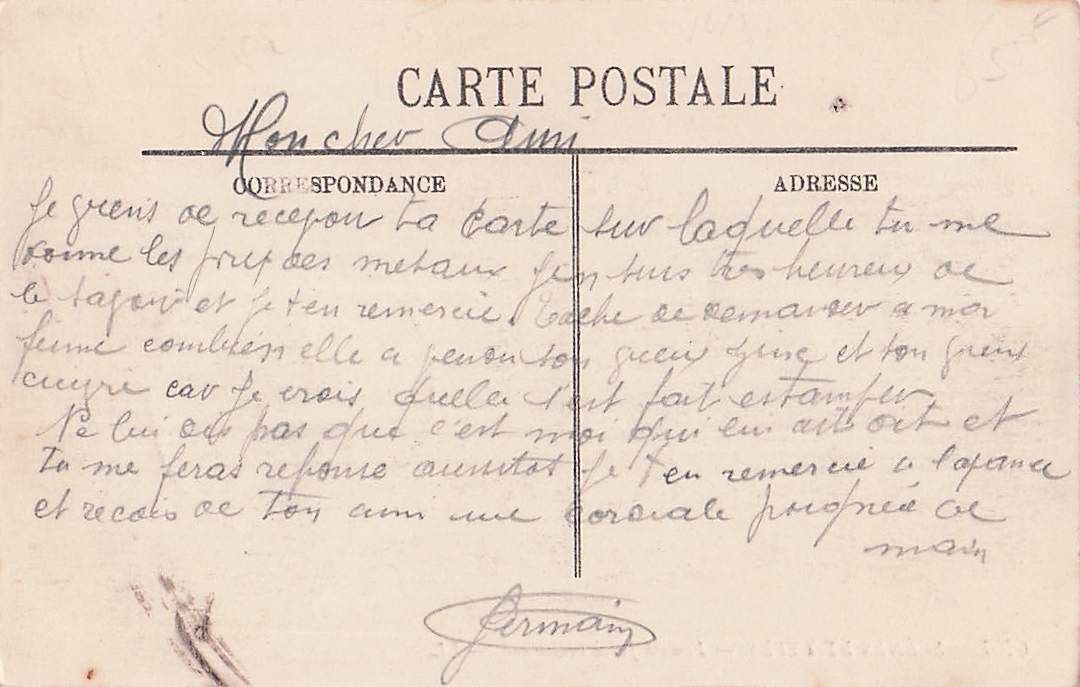 CARTE POSTALE
Mon cher Ami
CORRESPONDANCE
ADRESSE
Je viens de recevoir ta carte sur laquelle tu me
donne les prix des metaux Jen suis tres heureux de
le savoir et je ten remercie. Tache de demander a ma
femme combien elle a vendu son vieux et son vieux
cuivre car Je crois quelle s'est fait estamper
Ne lui dis pas que c'est moi qui en ait dit et
tu me feras reponse aussitot Je ten remercie a lavance
et recois de ton ami une cordiale poignée de
main
Germain